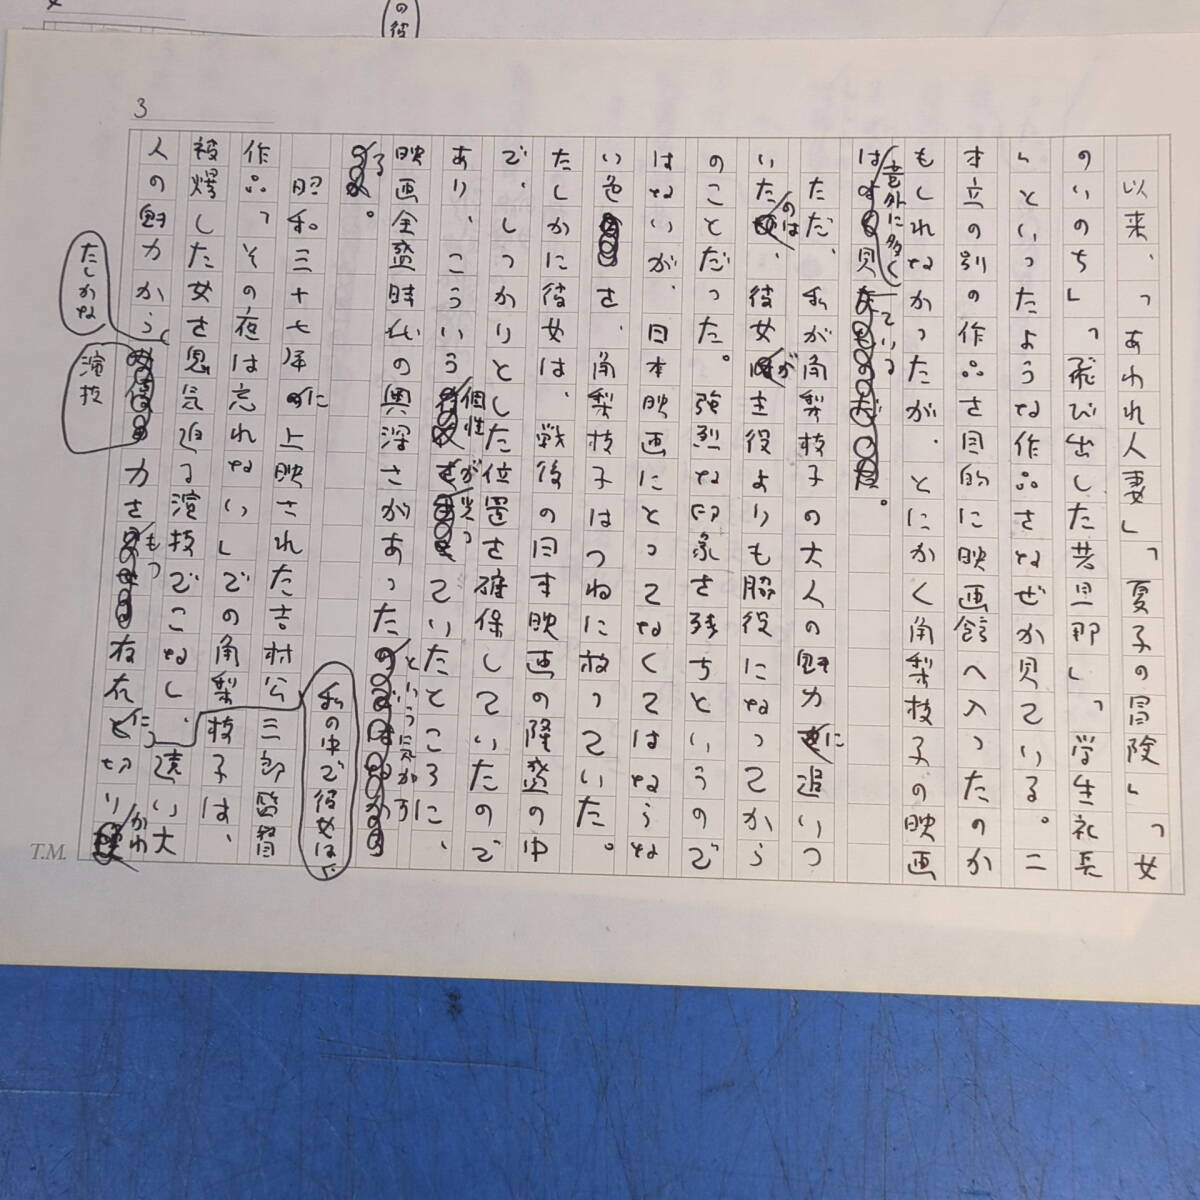 3
以来、「あわれ人妻」「夏子の冒険」「女
のいのち」「飛び出した若旦那」「学生社長
」といったような作品をなぜか見ている。二
本立の別の作品を目的に映画館へ入ったのか
もしれなかったが、とにかく角梨枝子の映画
は意外に多く見ている。
ただ、私が角梨枝子の大人の魅力に追いつ
いたのは、彼女が主役よりも脇役になってから
のことだった。強烈な印象を残ちというので
はないが、日本映画にとってなくてはならな
い色を、角梨枝子はつねに放っていた。
たしかに彼女は、戦後の日本映画の隆盛の中
で、しっかりとした位置を確保していたので
あり、こういう個性が光っていたところに、
映画全盛時代の奥深さがあったという気がす
る。
昭和三十七年に上映された吉村公三郎監督
作品「その夜は忘れない」での角梨枝子は、
私の中で彼女は、
被爆した女を鬼気迫る演技でこなし、遠い大
人の魅力から
たしかな
演技
力をもつ存在に切りかわ
T.M.
の役